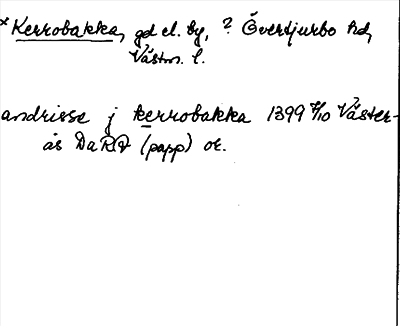 * Kerrobakka, gd el. by, ? Övertjurbo hd,
Västm. l.
andrisse j kerrobakka 1399 7/10 Väster-
ås DaRA (papp) or.